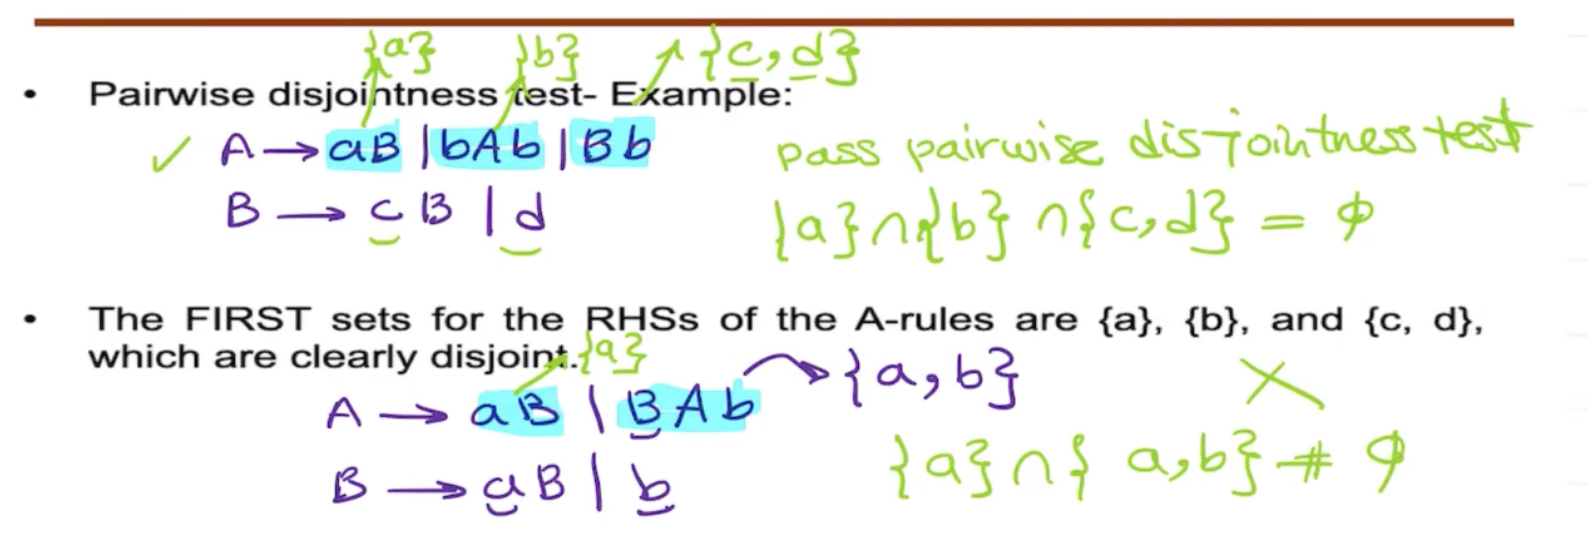 {a} {b} {c, d}
• Pairwise disjointness test- Example:
✓ A → aB | bAb | Bb pass pairwise disjointness test
B → cB | d {a} ∩ {b} ∩ {c, d} = ϕ
• The FIRST sets for the RHSs of the A-rules are {a}, {b}, and {c, d},
which are clearly disjoint. {a} {a, b} ✗
A → aB | BAb
B → aB | b {a} ∩ { a, b} ≠ ϕ